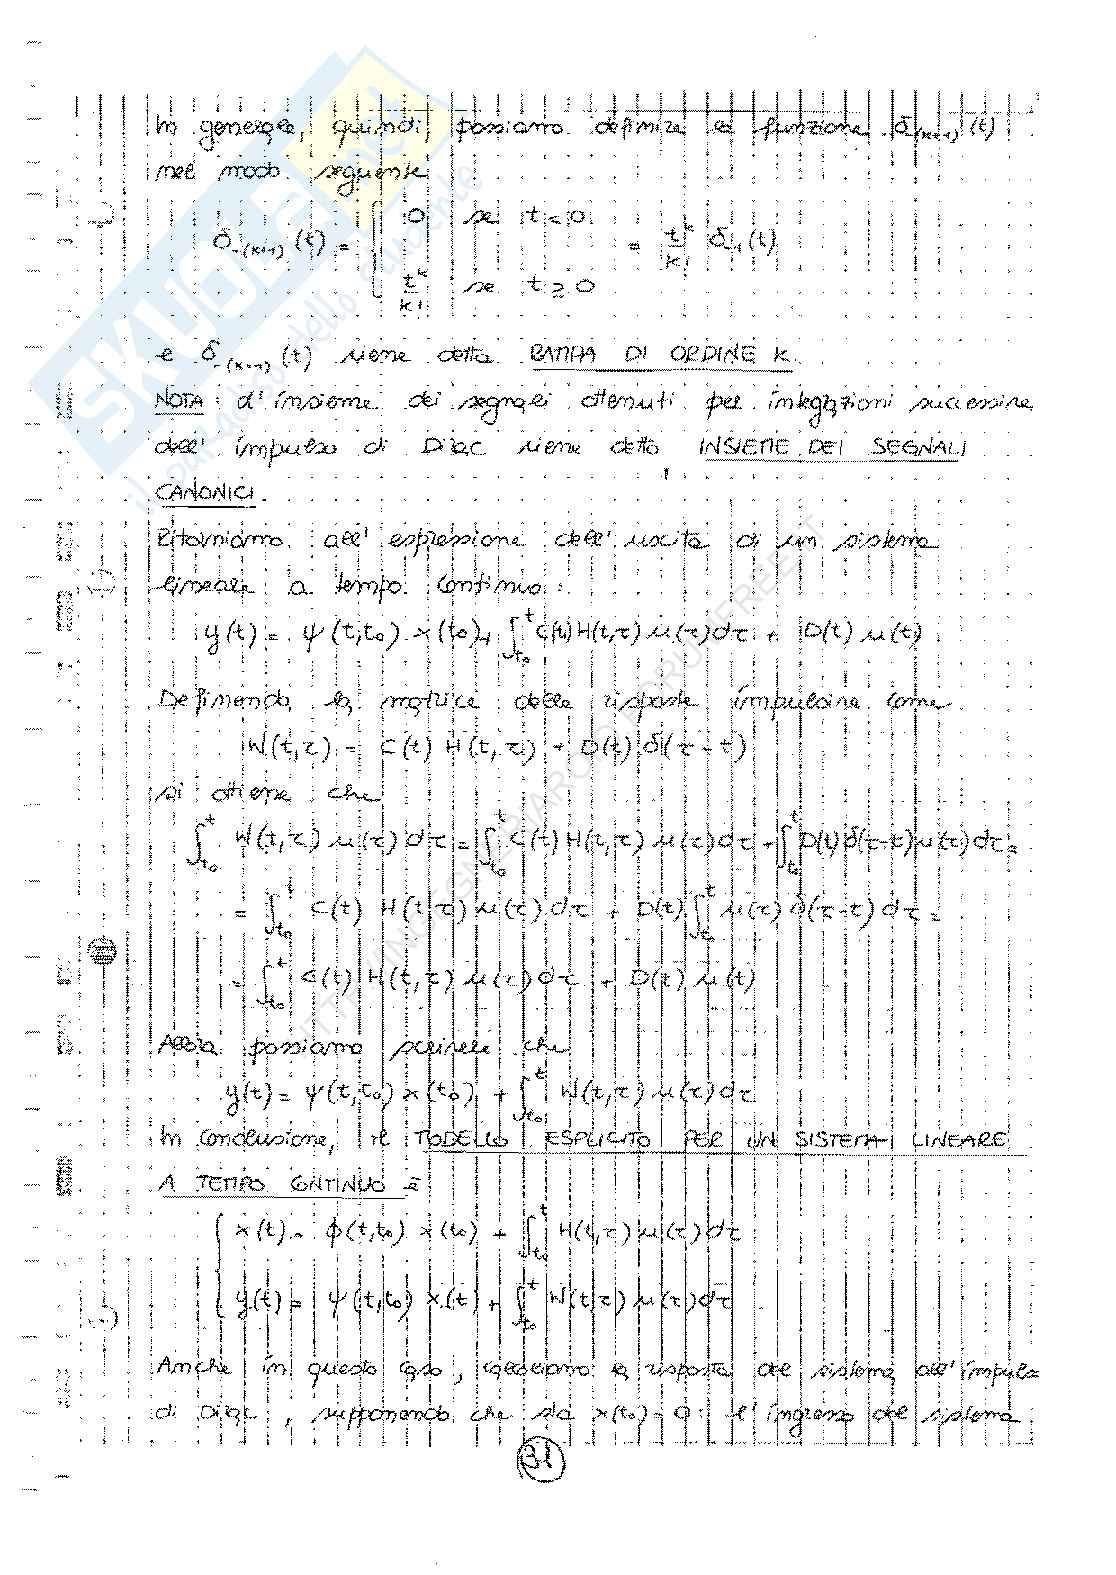 In generale, quindi, possiamo definire la funzione δ-(k+1)(t)
nel modo seguente
δ-(k+1)(t) = { 0 se t < 0 ; t^k/k! se t ≥ 0 = t^k/k! δ-1(t)
e δ-(k+1)(t) viene detta RAMPA DI ORDINE K.
NOTA : L'insieme dei segnali ottenuti per integrazioni successive
dell' impulso di Dirac viene detto INSIEME DEI SEGNALI
CANONICI.
Ritorniamo all' espressione dell' uscita di un sistema
lineale a tempo continuo :
y(t) = ψ(t,t₀) x(t₀) + ∫_{t₀}^{t} C(t)H(t,τ)u(τ)dτ + D(t) u(t)
Definendo la matrice delle risposte impulsive come
W(t,τ) = C(t) H(t,τ) + D(t) δ(τ-t)
si ottiene che
∫_{t₀}^{t} W(t,τ) u(τ) dτ = ∫_{t₀}^{t} C(t)H(t,τ) u(τ)dτ + ∫_{t₀}^{t} D(t)δ(τ-t)u(τ)dτ =
= ∫_{t₀}^{t} C(t) H(t,τ) u(τ) dτ + D(t) ∫_{t₀}^{t} u(τ) δ(τ-t) dτ =
= ∫_{t₀}^{t} C(t) H(t,τ) u(τ) dτ + D(t) u(t)
Allora possiamo scrivere che
y(t) = ψ(t,t₀) x(t₀) + ∫_{t₀}^{t} W(t,τ) u(τ)dτ
In conclusione, il MODELLO ESPLICITO PER UN SISTEMA LINEARE
A TEMPO CONTINUO è
{ x(t) = φ(t,t₀) x(t₀) + ∫_{t₀}^{t} H(t,τ) u(τ)dτ
y(t) = ψ(t,t₀) x(t) + ∫_{t₀}^{t} W(t,τ) u(τ)dτ
Anche in questo caso, calcoliamo la risposta del sistema all' impulso
di Dirac, supponendo che sia x(t₀) = 0 : l'ingresso del sistema
31